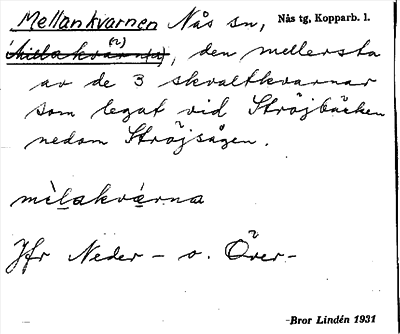 Mellankvarnen Nås sn, Nås tg, Kopparb. l.
den mellersta
av de 3 skvaltkvarnar
som legat vid Ströjbäcken
nedom Ströjsågen.
mèlakvárna
Jfr Neder- o. Över-
-Bror Lindén 1931